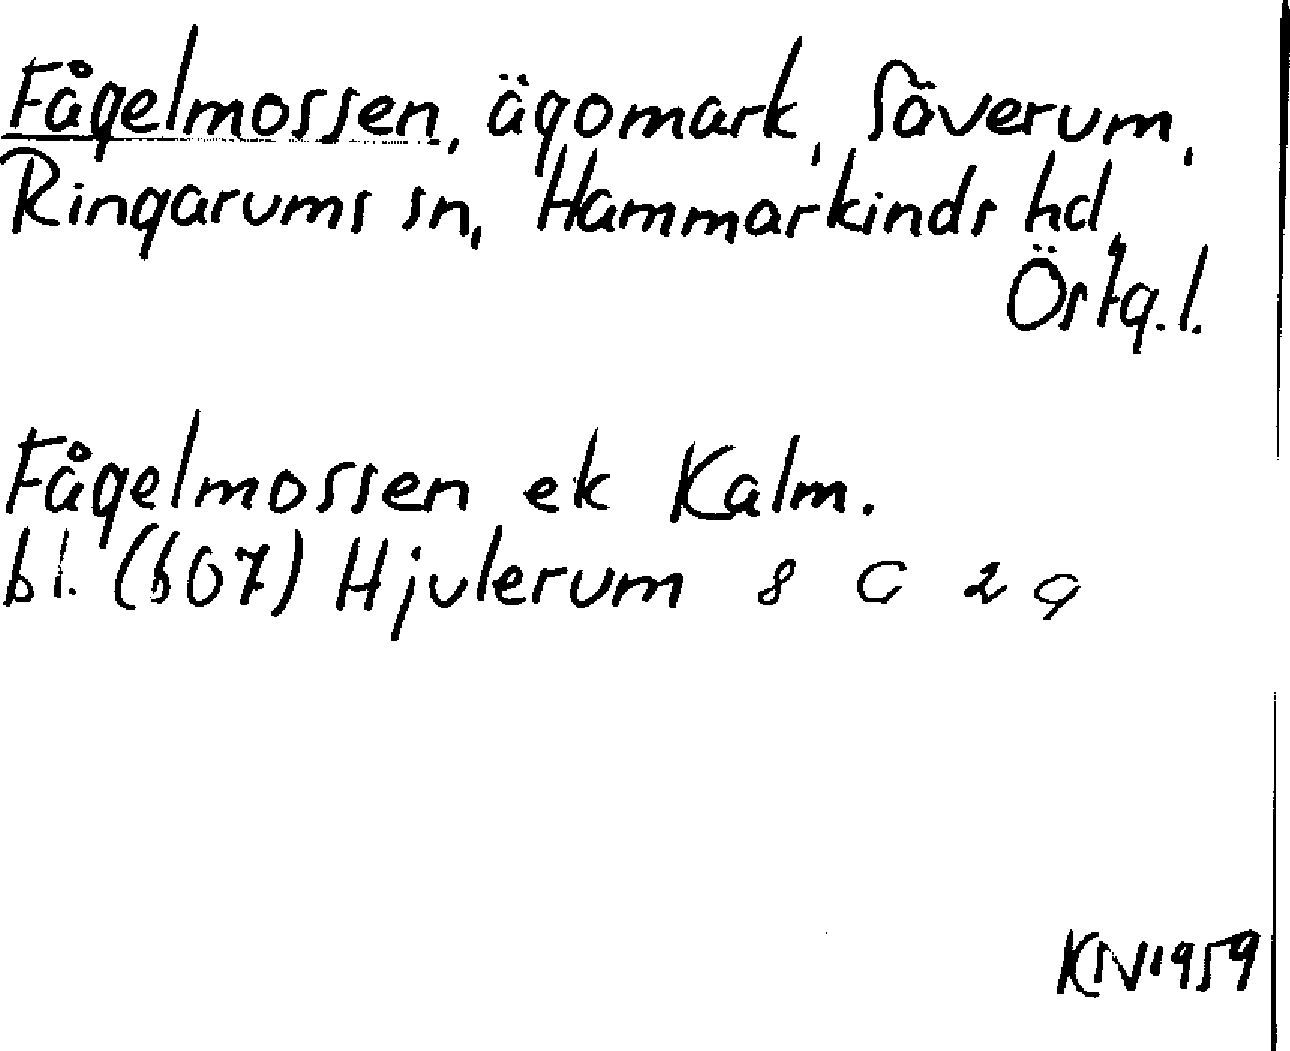 Fågelmossen, ägomark, Säverum,
Ringarums sn, Hammarkinds hd,
Östg.l.
Fågelmossen ek Kalm.
bl. (607) Hjulerum 8 G 2 g
KN 1959